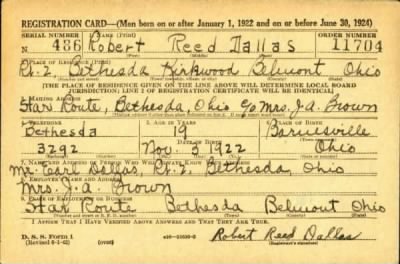 REGISTRATION CARD—(Men born on or after January 1, 1922 and on or before June 30, 1924)
SERIAL NUMBER 1. NAME (Print) ORDER NUMBER
N 486 Robert Reed Dallas 11704
2. PLACE OF RESIDENCE (Print)
Rt. 2, Bethesda Kirkwood Belmont Ohio
[THE PLACE OF RESIDENCE GIVEN ON THE LINE ABOVE WILL DETERMINE LOCAL BOARD
JURISDICTION; LINE 2 OF REGISTRATION CERTIFICATE WILL BE IDENTICAL]
3. MAILING ADDRESS
Star Route, Bethesda, Ohio c/o Mrs. J.A. Brown
4. TELEPHONE 5. AGE IN YEARS 6. PLACE OF BIRTH
Bethesda 19 Barnesville
DATE OF BIRTH
3292 Nov. 5 1922 Ohio
7. NAME AND ADDRESS OF PERSON WHO WILL ALWAYS KNOW YOUR ADDRESS
Mr. Earl Dallas, Rt. 2, Bethesda, Ohio
8. EMPLOYER'S NAME AND ADDRESS
Mrs. J.A. Brown
9. PLACE OF EMPLOYMENT OR BUSINESS
Star Route Bethesda Belmont Ohio
I AFFIRM THAT I HAVE VERIFIED ABOVE ANSWERS AND THAT THEY ARE TRUE.
D. S. S. Form 1
(over)
Robert Reed Dallas
(Registrant's signature)